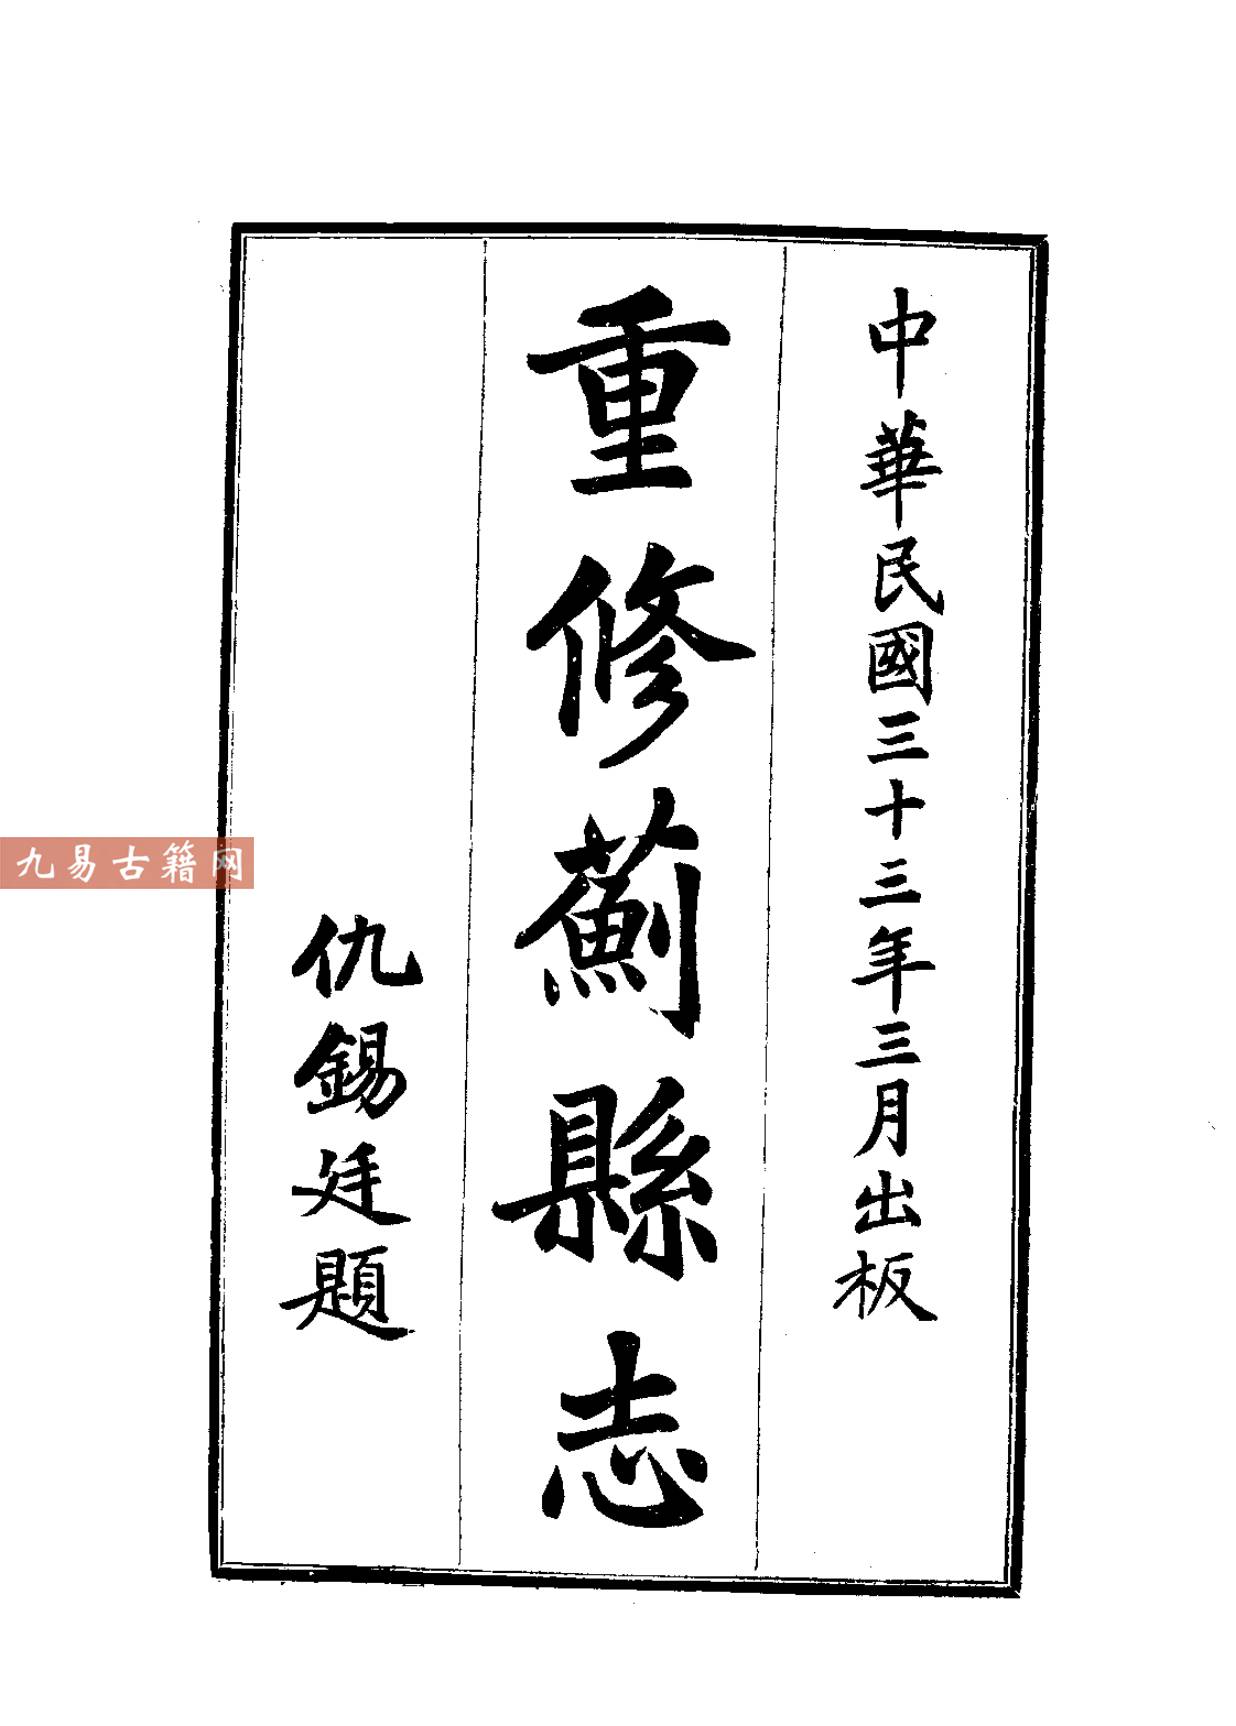 中華民國三十三年三月出板
重修薊縣志
仇錫廷題
九易古籍网